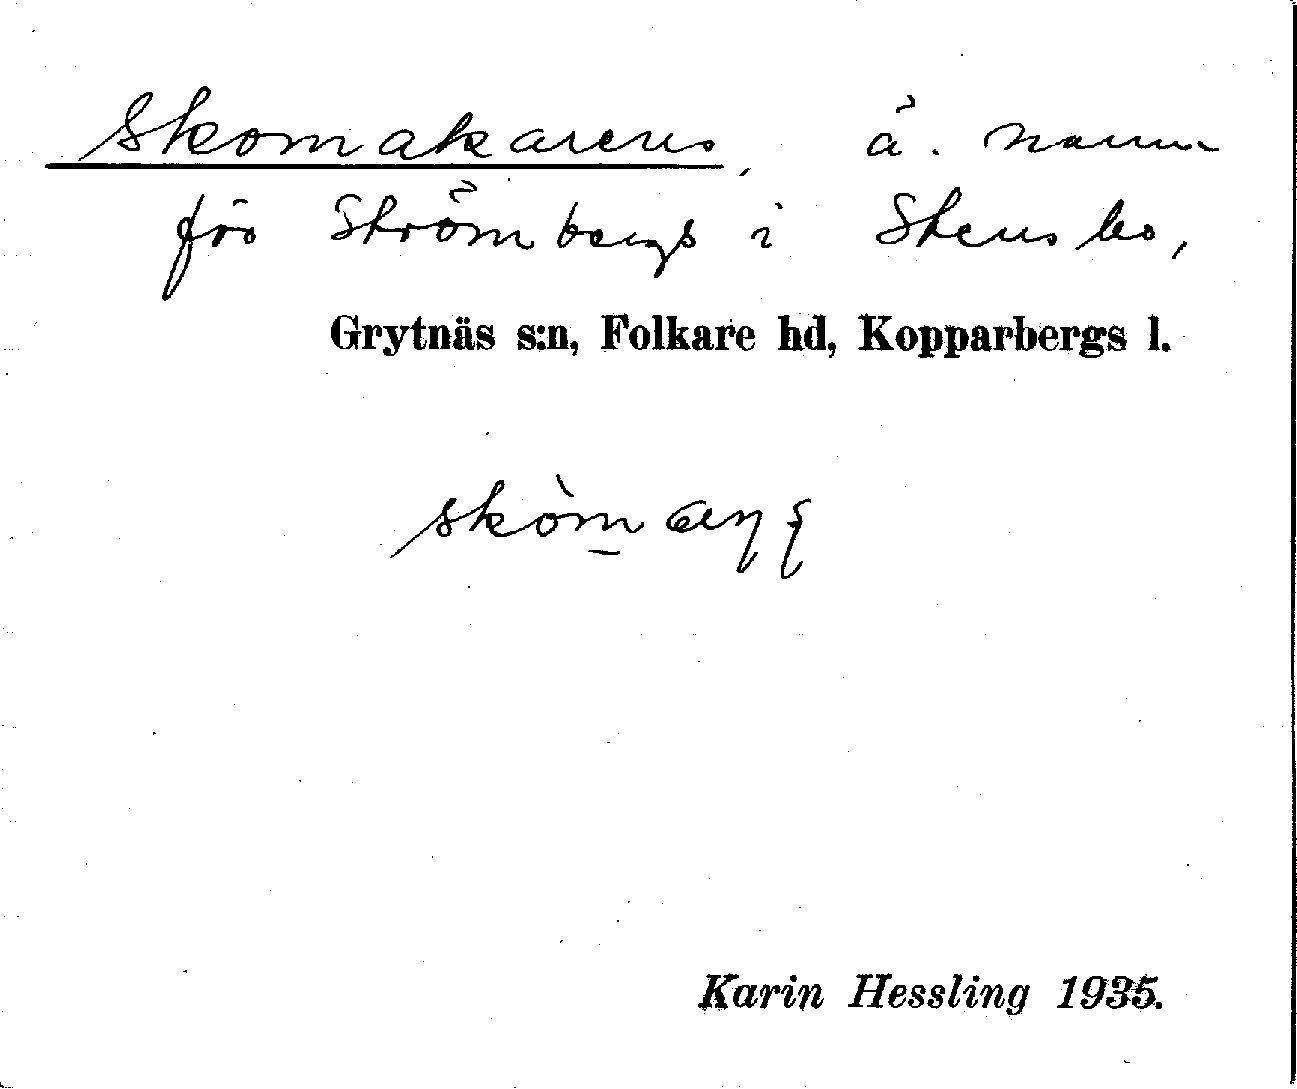 Skomakarens, ä. namn
för Strömbergs i Stensbo,
Grytnäs s:n, Folkare hd, Kopparbergs l.
Karin Hessling 1935.